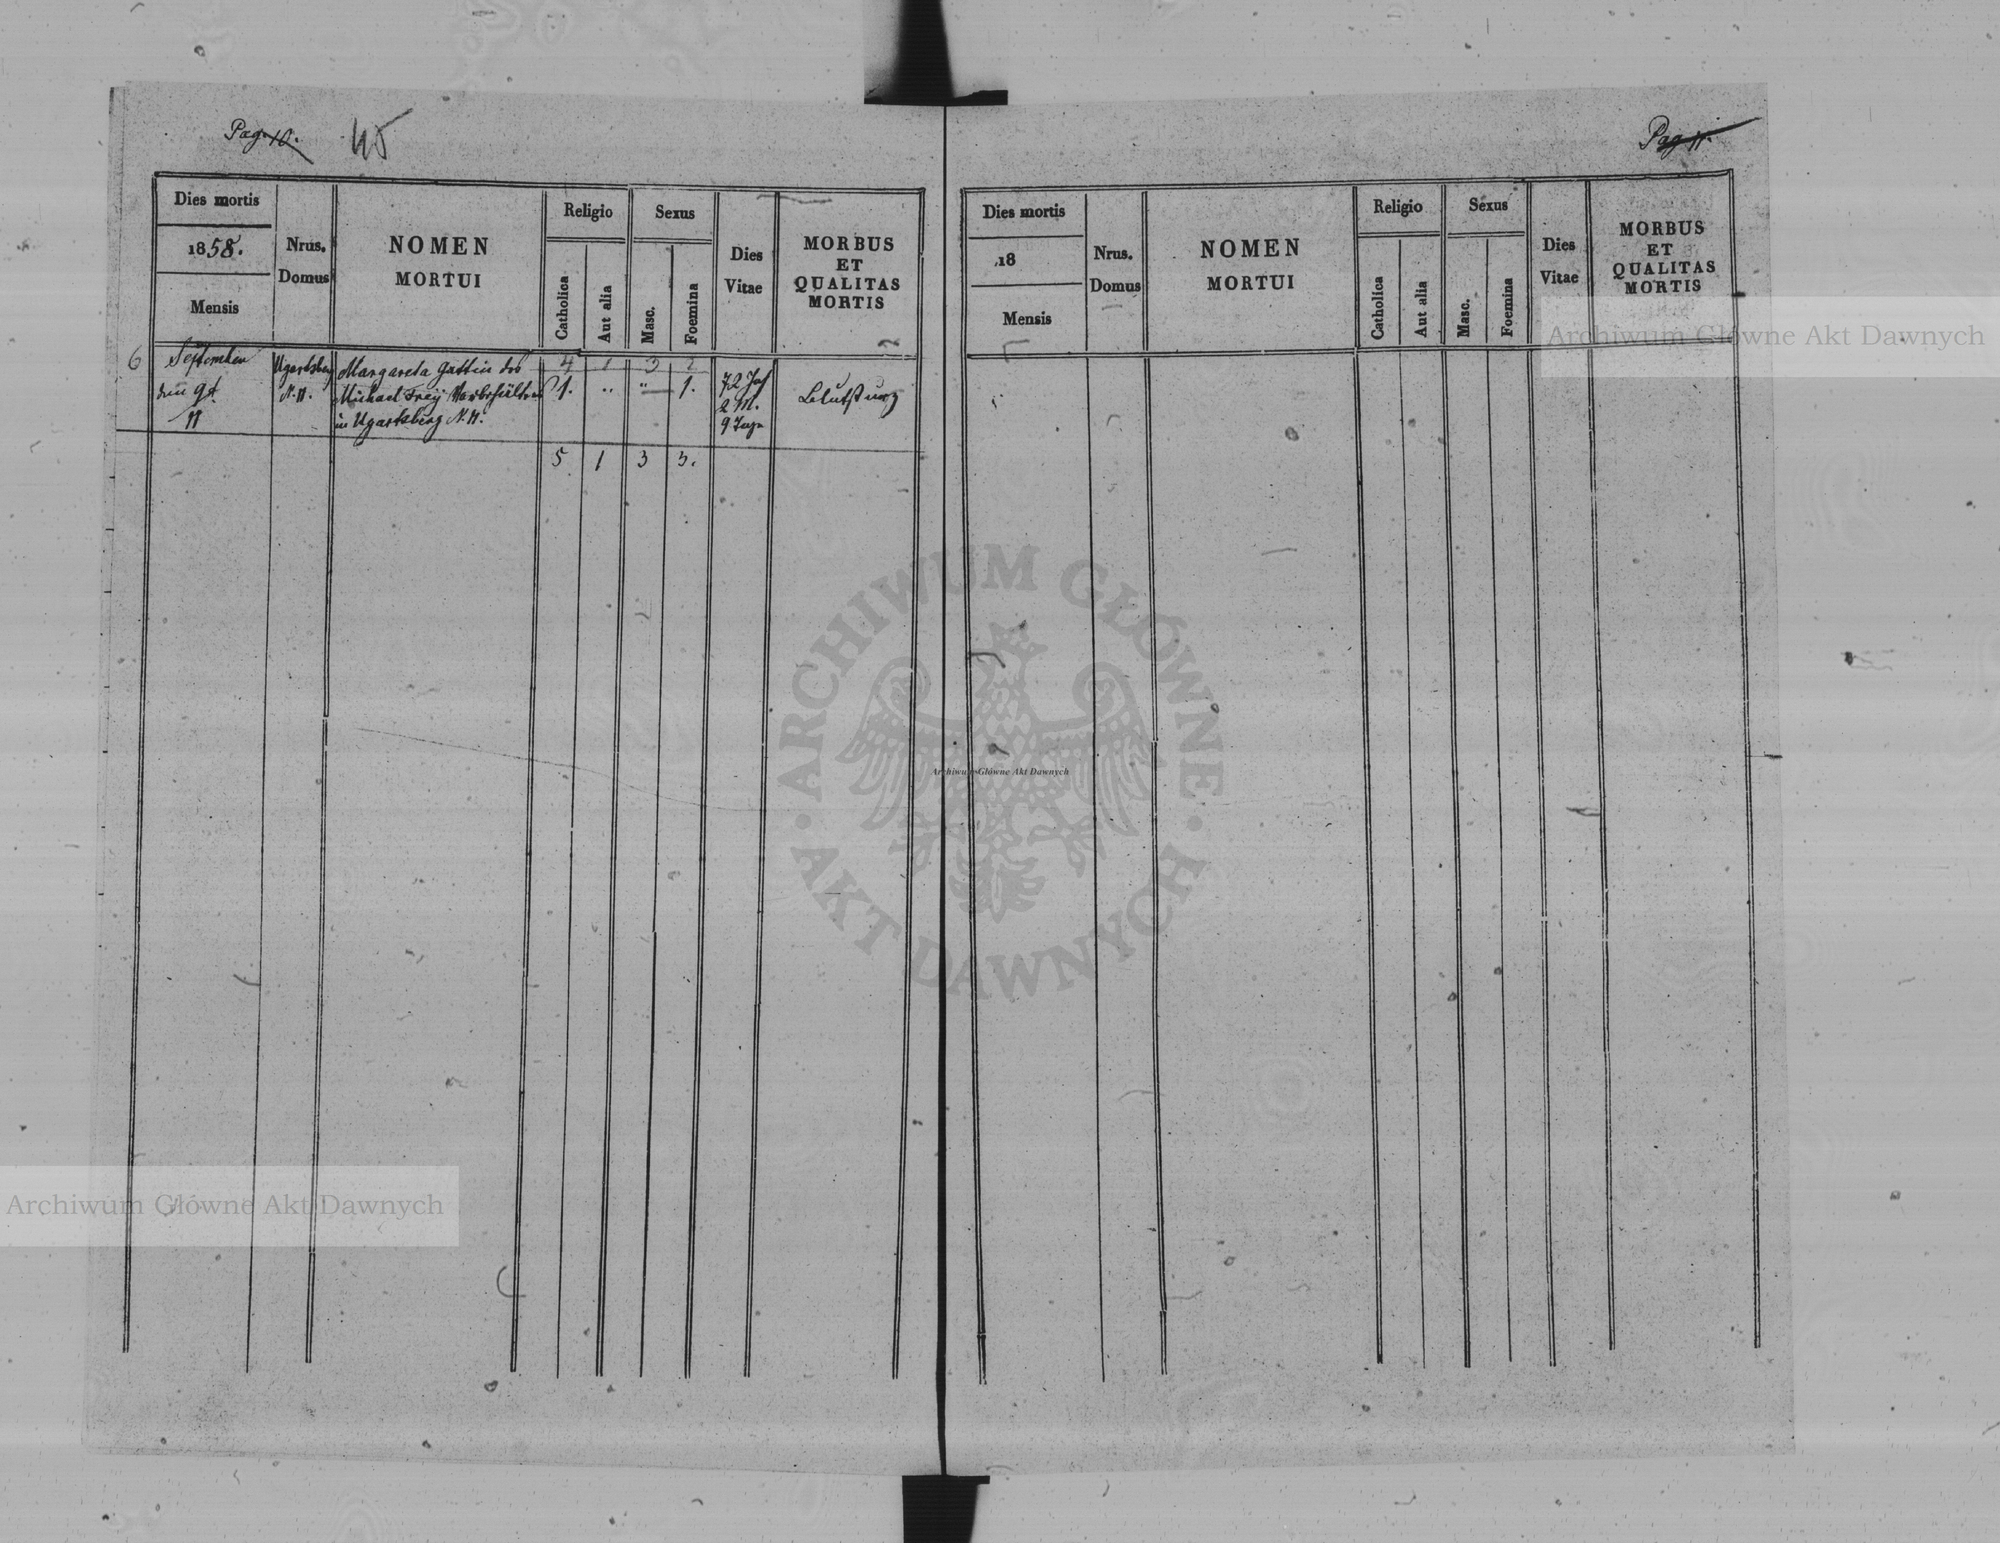 Pag 10.
45
Dies mortis
1858.
Mensis
Nrus.
Domus
NOMEN
MORTUI
Religio
Catholica
Aut alia
Sexus
Masc.
Foemina
Dies
Vitae
MORBUS
ET
QUALITAS
MORTIS
6
September
den 9t
11
Ugartsberg
N. 11.
Margareta Gattin des
Michael Frey
in Ugartsberg N. 11.
4 1 3 2
1. " " 1.
72 Jah
2 M.
9 Tage
Blutsturz
5 1 3 3.
Pag 11.
Dies mortis
18
Mensis
Nrus.
Domus
NOMEN
MORTUI
Religio
Catholica
Aut alia
Sexus
Masc.
Foemina
Dies
Vitae
MORBUS
ET
QUALITAS
MORTIS
Archiwum Główne Akt Dawnych
ARCHIWUM GŁÓWNE
AKT DAWNYCH
Archiwum Główne Akt Dawnych
Archiwum Główne Akt Dawnych